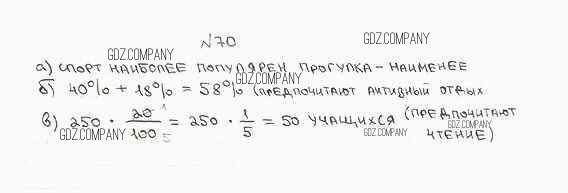 №70
GDZ.COMPANY
GDZ.COMPANY
а) спорт наиболее популярен прогулка – наименее
GDZ.COMPANY
б) 40% + 18% = 58% (предпочитают активный отдых
в) 250 · 20/100 = 250 · 1/5 = 50 учащихся (предпочитают чтение)
1
5
GDZ.COMPANY
GDZ.COMPANY
GDZ.COMPANY